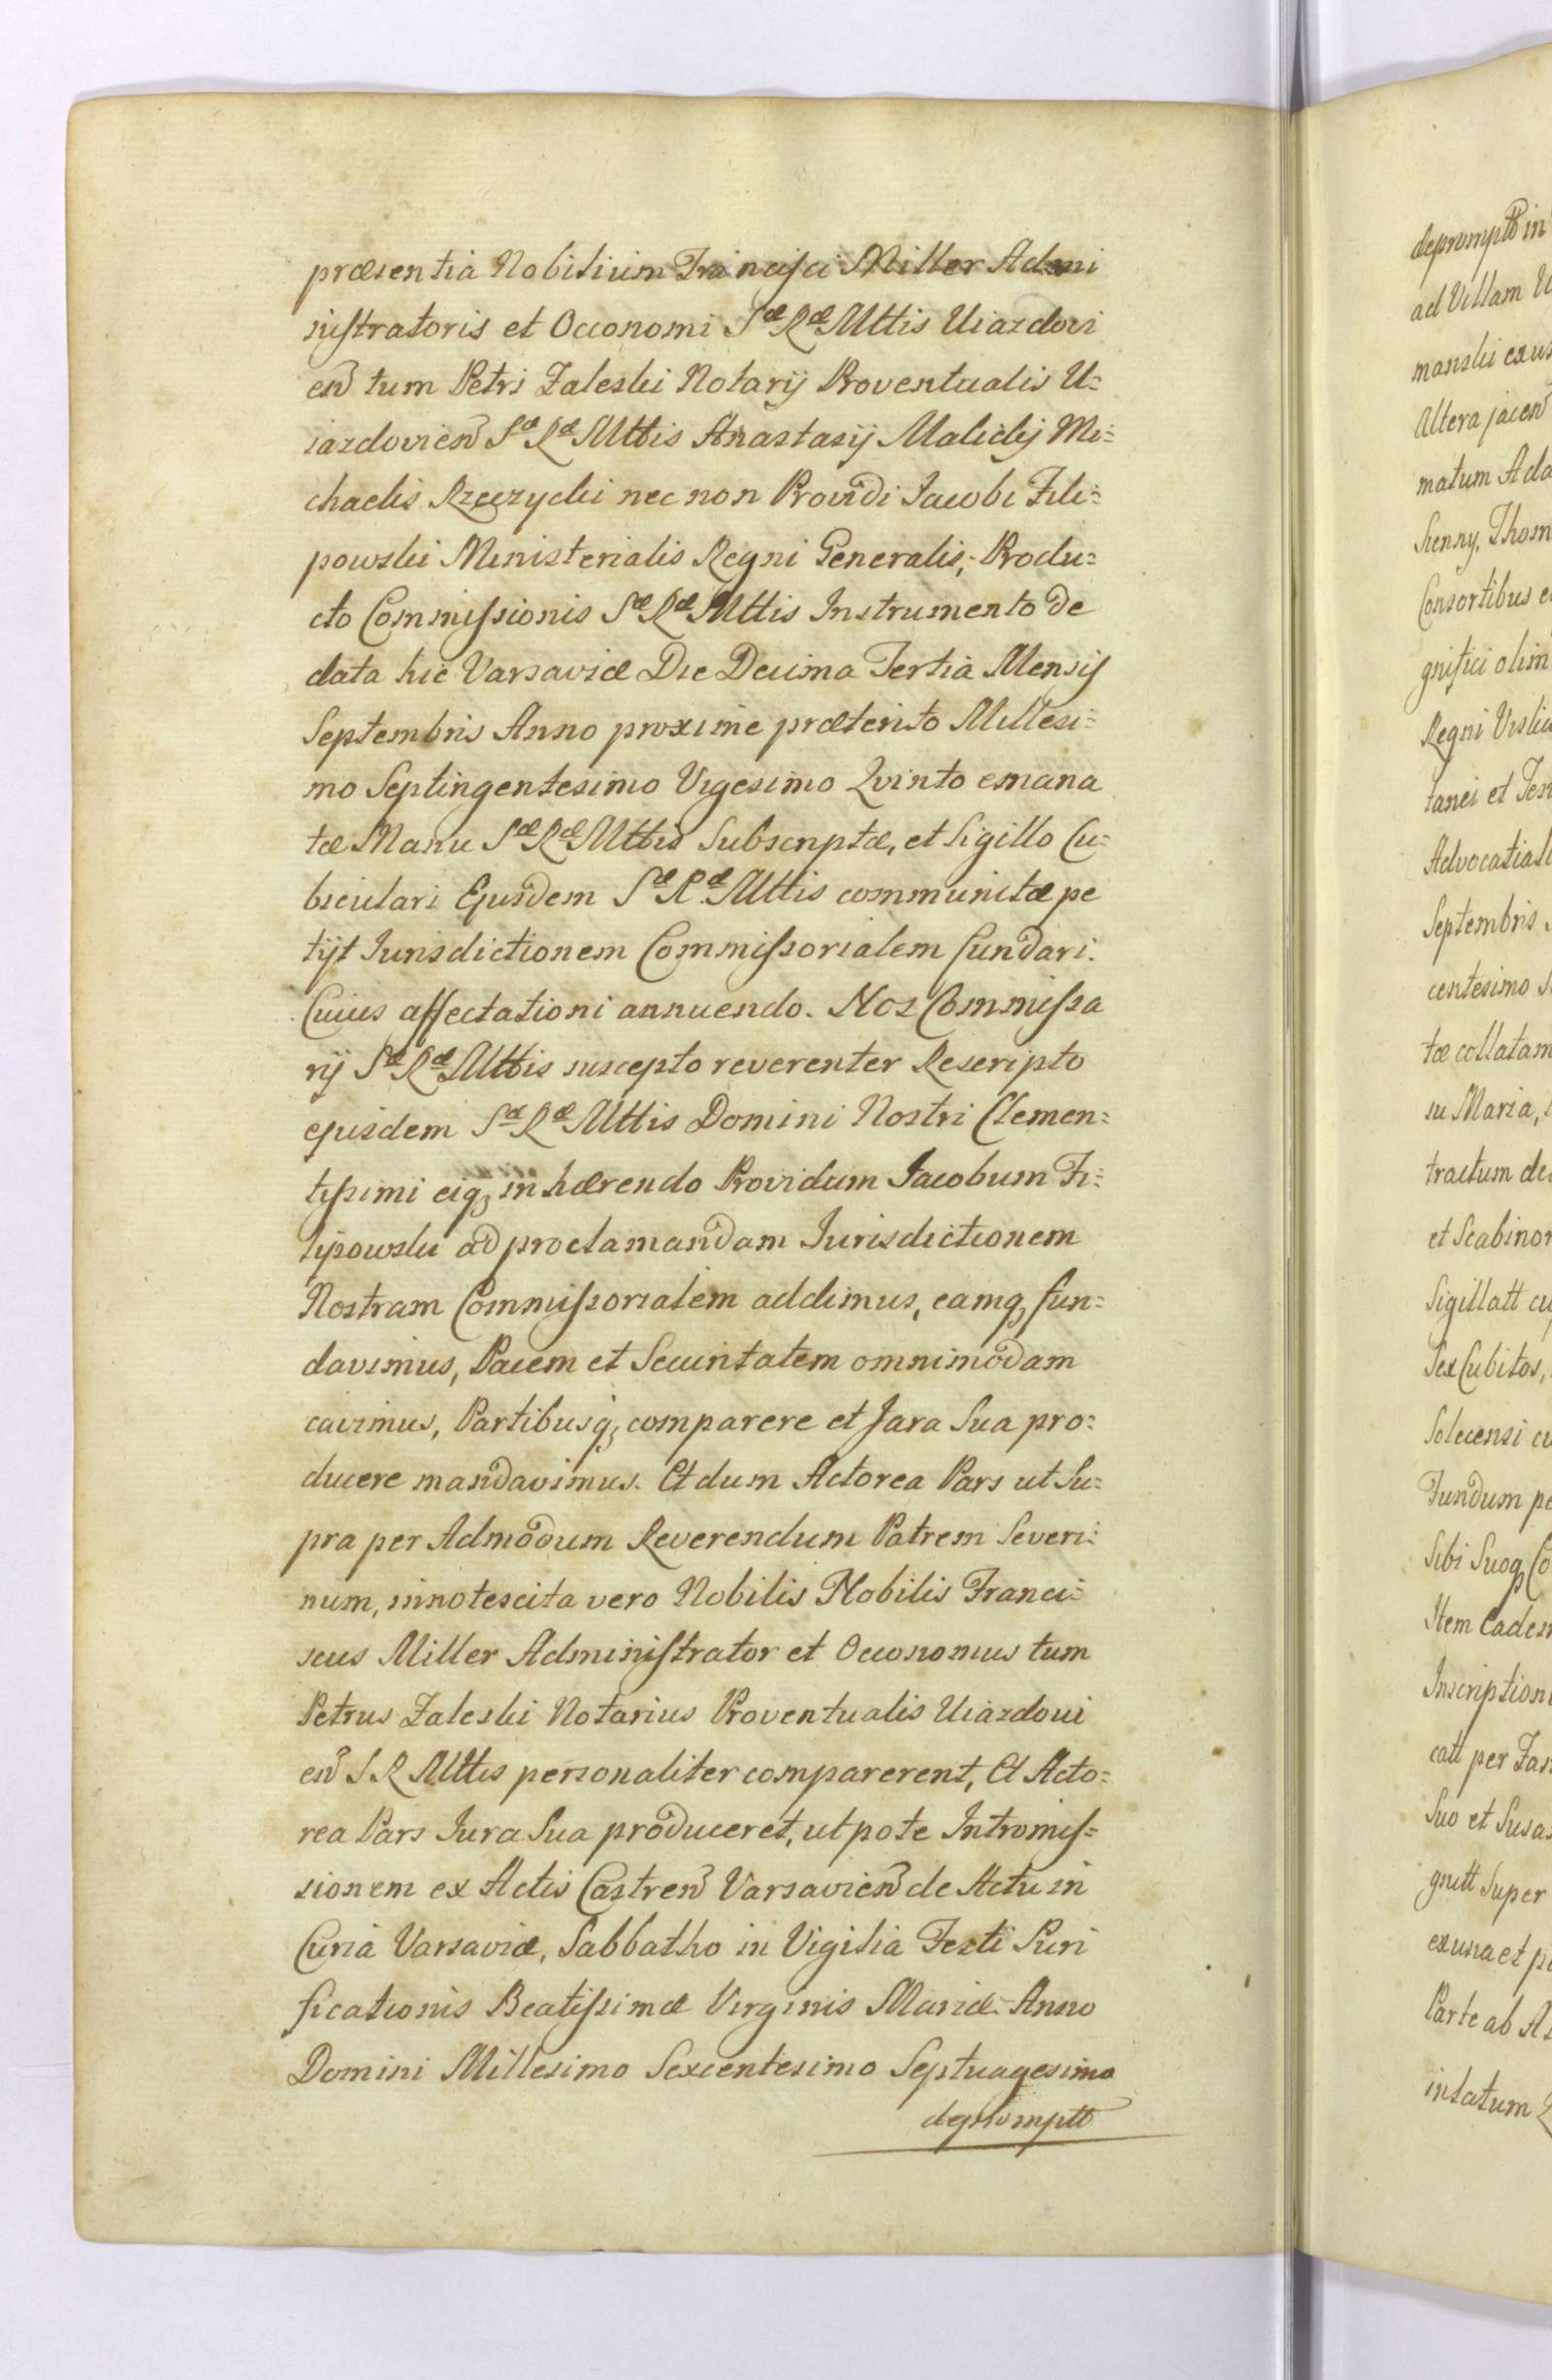 præsentia Nobilium Francisci Miller Admi
nistratoris et Oeconomi Sæ Ræ Mttis Uiazdovi
eñ tum Petri Zaleski Notarij Proventualis U=
iazdovieñ Sæ Ræ Mttis Anastasij Malicki Mi=
chaelis Rzeczycki nec non Providi Jacobi Fili=
powski Ministerialis Regni Generalis, Produ=
cto Commissionis Sæ Ræ Mttis Instrumento de
data hic Varsaviæ Die Decima Tertia Mensis
Septembris Anno proxime præterito Millesi=
mo Septingentesimo Vigesimo Qvinto emana
tæ Manu Sæ Ræ Mttis Subscriptæ, et Sigillo Cu=
biculari Ejusdem Sæ R.æ Mttis communitæ pe
tijt Jurisdictionem Commissorialem fundari.
Cuius affectationi annuendo. Nos Commissa
rij Sæ Ræ Mttis suscepto reverenter Rescripto
ejusdem Sæ Ræ Mttis Domini Nostri Clemen=
tissimi eiq; inhærendo Providum Jacobum Fi=
lipowski ad proclamandam Jurisdictionem
Nostram Commissorialem addimus, eamq; fun=
davimus, Pacem et Securitatem omnimodam
cavimus, Partibusq; comparere et Jura Sua pro=
ducere mandavimus. Et dum Actorea Pars ut Su=
pra per Admodum Reverendum Patrem Severi=
num, innotescita vero Nobilis Nobilis Franci=
scus Miller Administrator et Oeconomus tum
Petrus Zaleski Notarius Proventualis Uiazdovi
eñ S R Mttis personaliter comparerent, Et Acto=
rea Pars Jura Sua produceret, ut pote Intromis=
sionem ex Actis Castreñ Varsavieñ de Actu in
Curia Varsaviæ, Sabbatho in Vigilia Festi Puri
ficationis Beatissimæ Virginis Mariæ Anno
Domini Millesimo Sexcentesimo Septuagesimo
depromptt
deprompto in
ad Villam
manski
Altera jaceñ
matum
Thom
Consortibus
gnifici olim
Regni Vislic
tanei et
Advocatial
Septembris
centesimo
tæ collatam
su Maria,
tractum de
et Scabinor
Sigillatt
Sex Cubitos,
Solecensi
Fundum
Sibi Suoq;
Item Eadem
Inscription
catt per
Suo et Susa
gnitt Super
ex una et
Parte ab
intatum